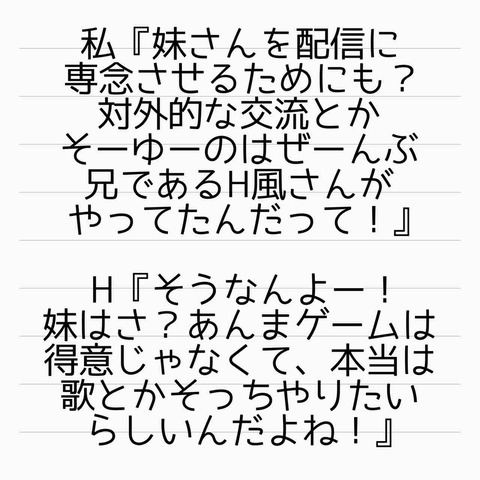 私『妹さんを配信に
専念させるためにも？
対外的な交流とか
そーゆーのはぜーんぶ
兄であるH風さんが
やってたんだって！』
H『そうなんよー！
妹はさ？あんまゲームは
得意じゃなくて、本当は
歌とかそっちやりたい
らしいんだよね！』